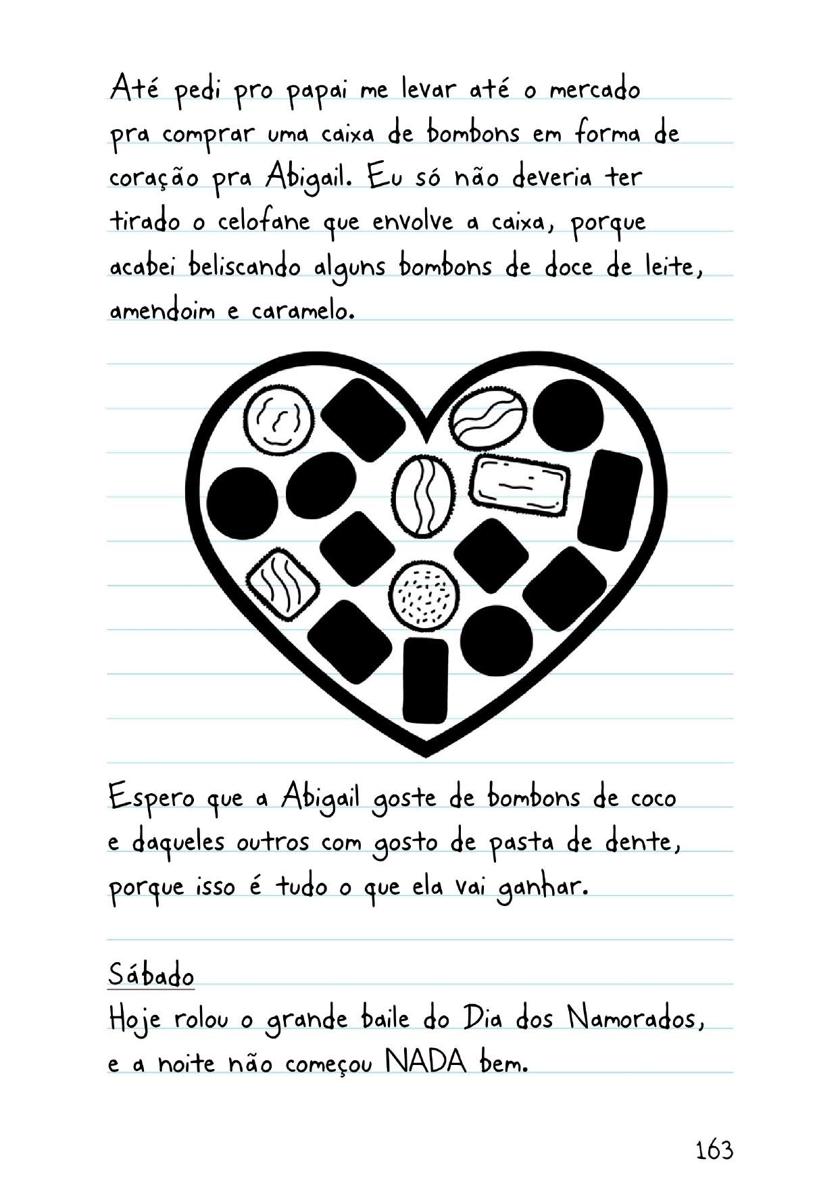 Até pedi pro papai me levar até o mercado
pra comprar uma caixa de bombons em forma de
coração pra Abigail. Eu só não deveria ter
tirado o celofane que envolve a caixa, porque
acabei beliscando alguns bombons de doce de leite,
amendoim e caramelo.
Espero que a Abigail goste de bombons de coco
e daqueles outros com gosto de pasta de dente,
porque isso é tudo o que ela vai ganhar.
Sábado
Hoje rolou o grande baile do Dia dos Namorados,
e a noite não começou NADA bem.
163